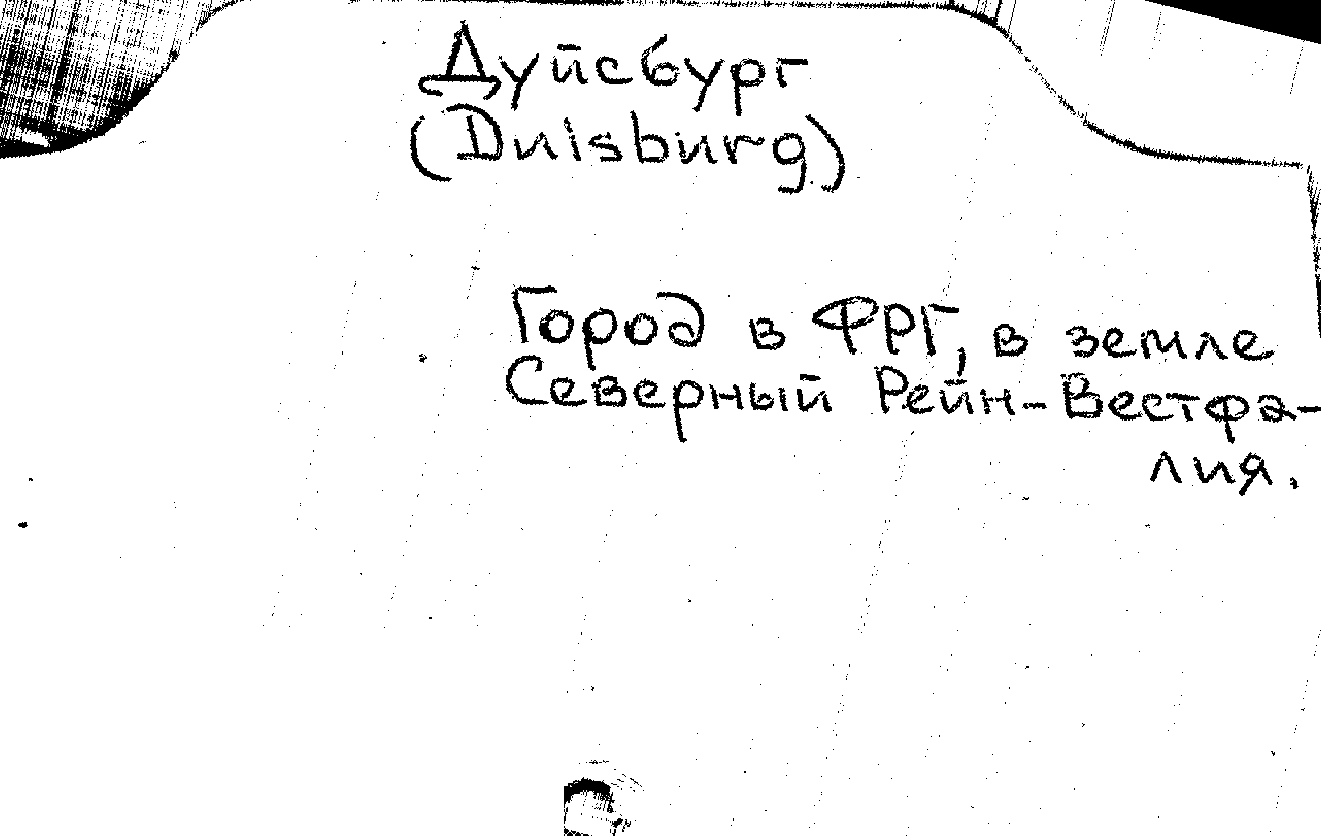 Дуйсбург
(Duisburg)
Город в ФРГ, в земле
Северный Рейн-Вестфа-
лия.